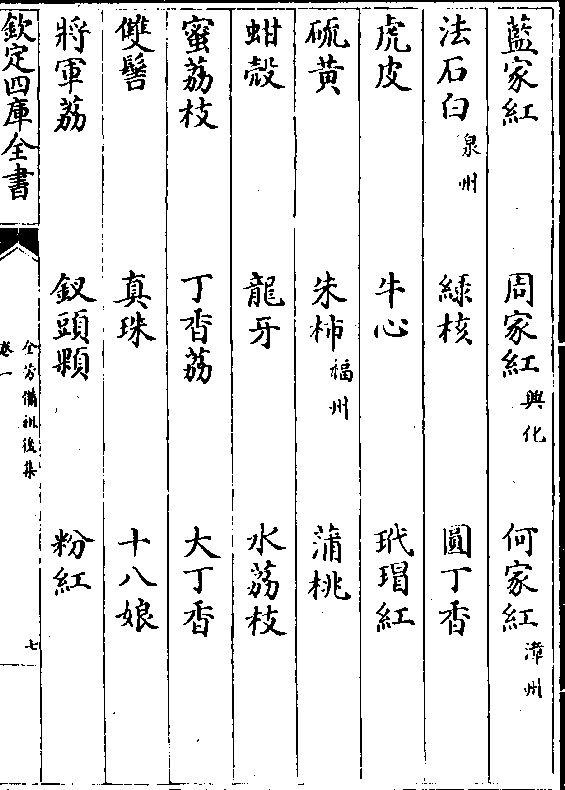 藍家紅 周家紅 興化 何家紅 漳州
法石白 泉州 緑核 圓丁香
虎皮 牛心 玳瑁紅
硫黄 朱柿 福州 蒲桃
蚶殼 龍牙 水荔枝
蜜荔枝 丁香荔 大丁香
雙髻 真珠 十八娘
將軍荔 釵頭顆 粉紅
欽定四庫全書
全芳備祖後集
卷一
七